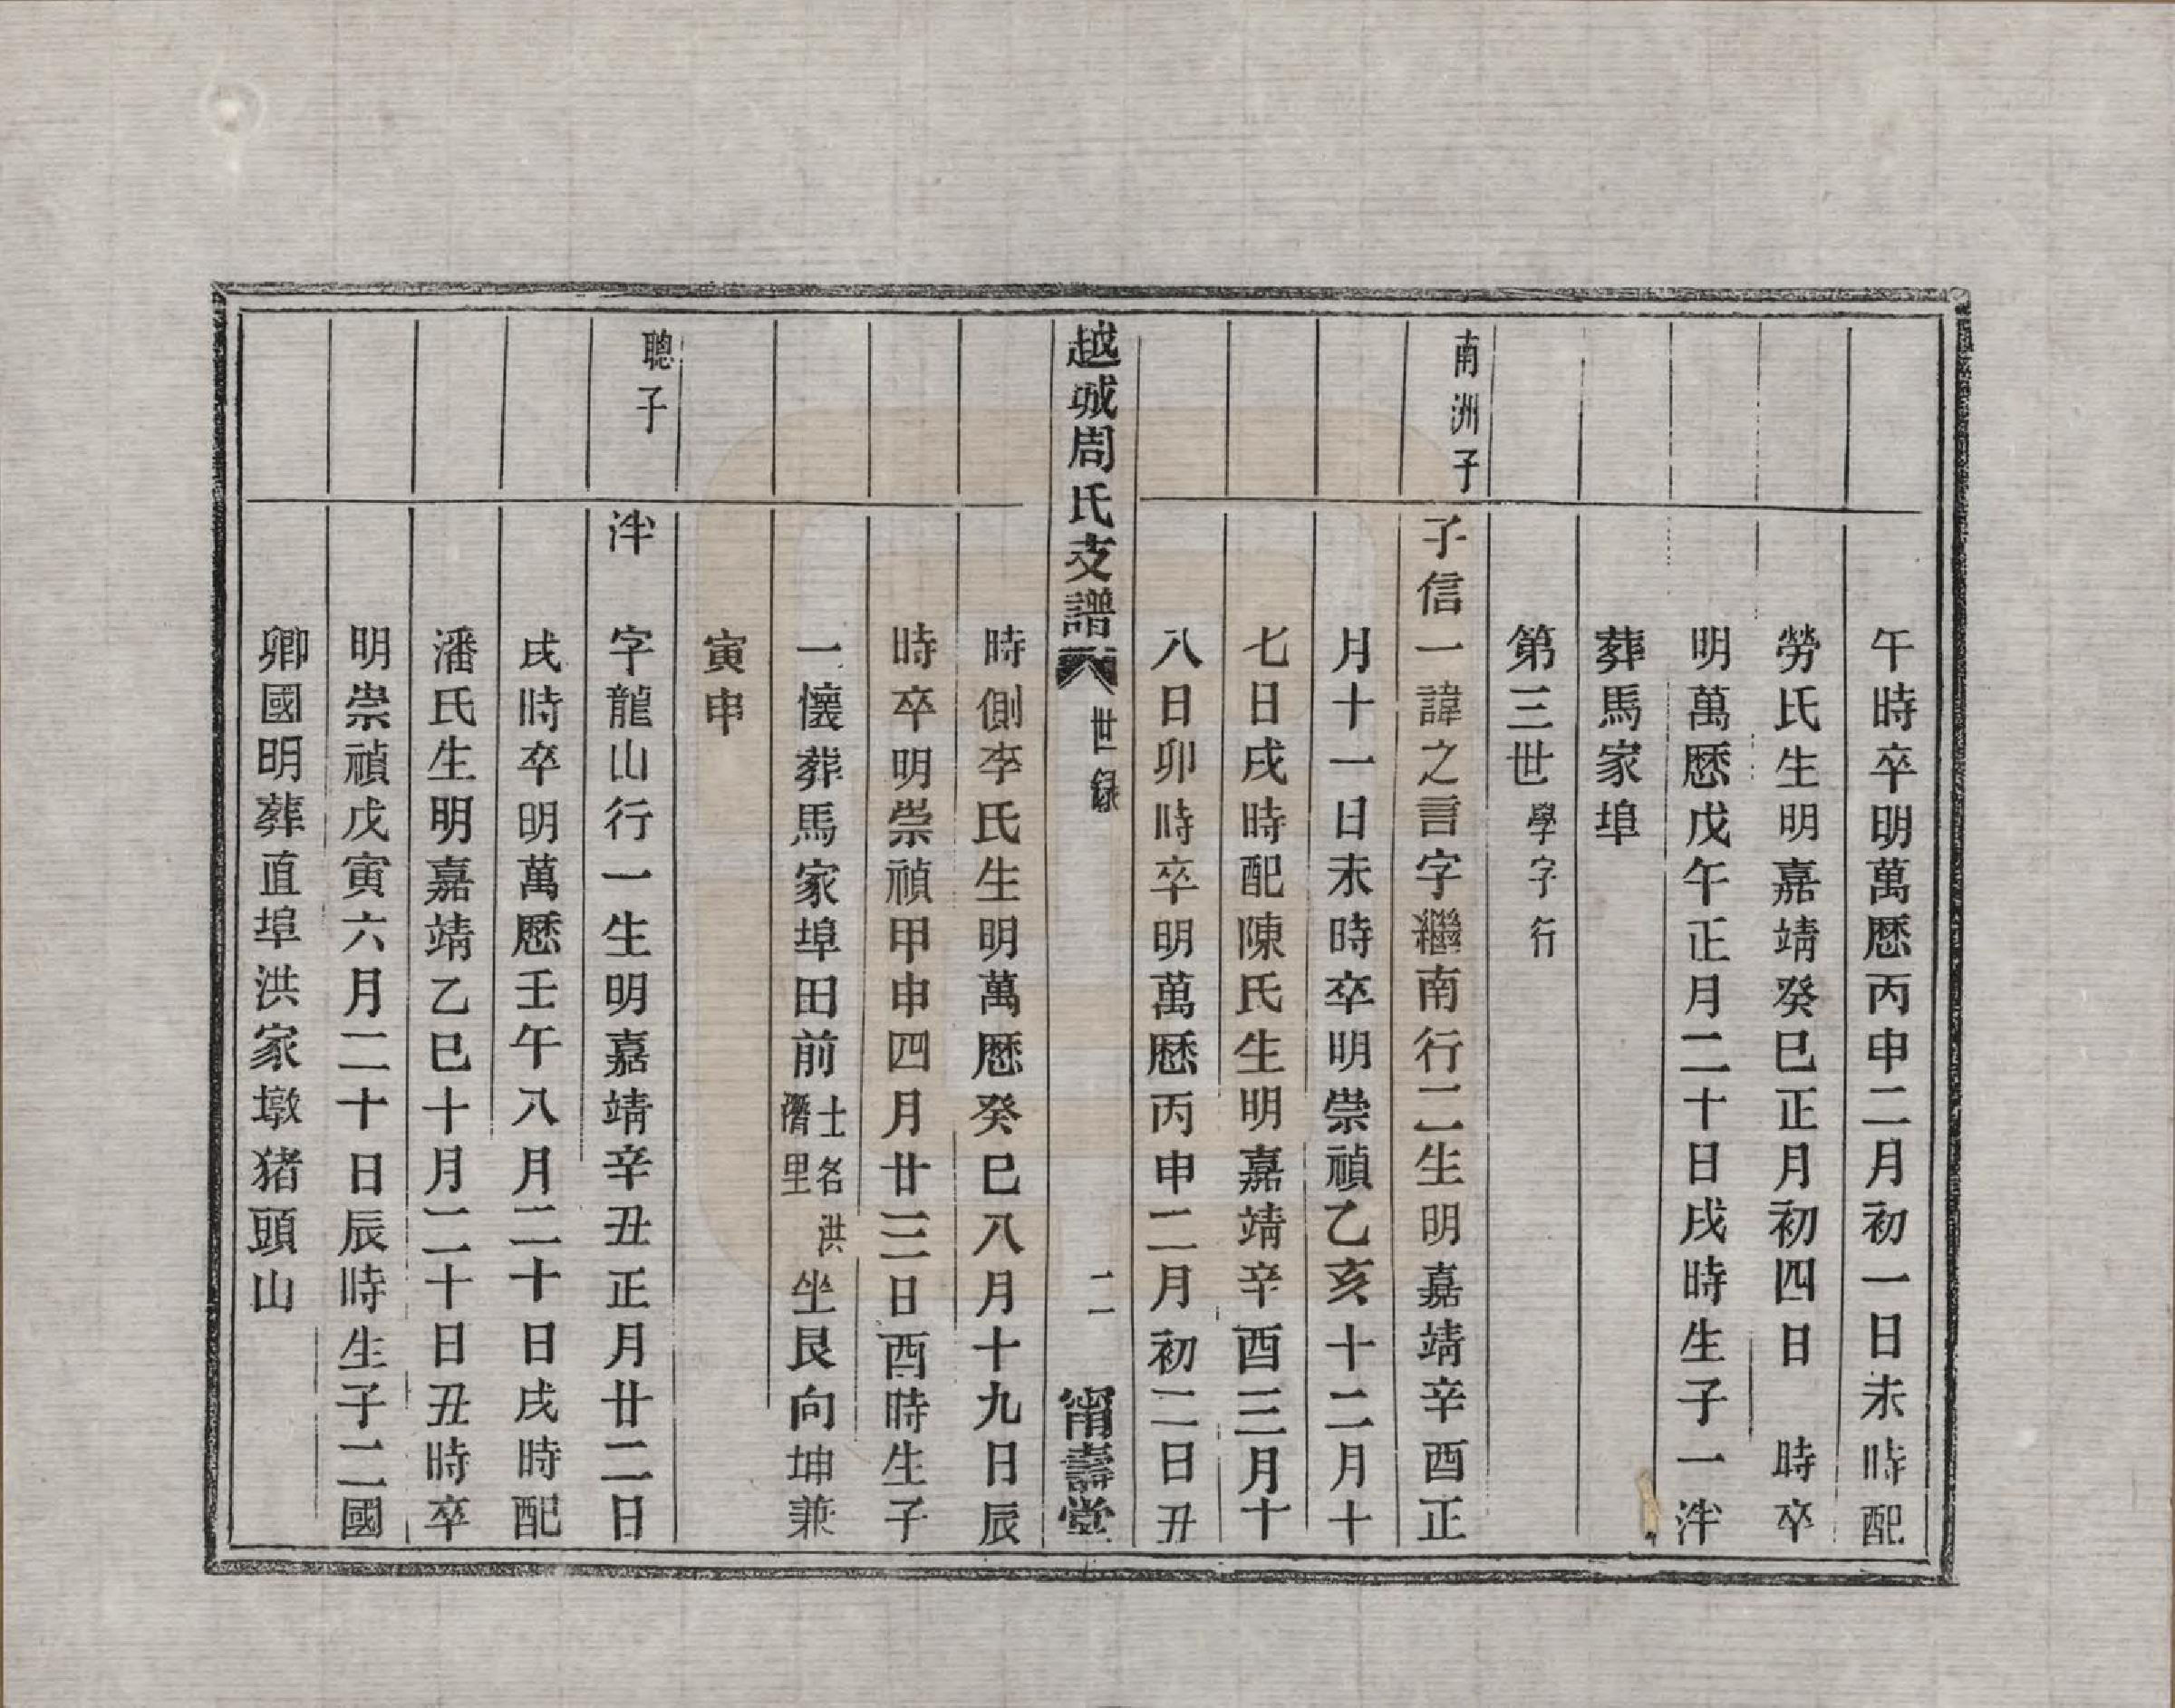 午時卒明萬厯丙申二月初一日未時配
勞氏生明嘉靖癸巳正月初四日　時卒
明萬厯戊午正月二十日戌時生子一泮
葬馬家埠
第三世學字行
南洲子
子信一諱之言字繼南行二生明嘉靖辛酉正
月十一日未時卒明崇禎乙亥十二月十
七日戌時配陳氏生明嘉靖辛酉三月十
八日卯時卒明萬厯丙申二月初二日丑
越城周氏支譜
世錄
二
甯壽堂
時側李氏生明萬厯癸巳八月十九日辰
時卒明崇禎甲申四月廿三日酉時生子
一懷葬馬家埠田前土名洪
漘里坐艮向坤兼
寅申
聰子
泮　字龍山行一生明嘉靖辛丑正月廿二日
戌時卒明萬厯壬午八月二十日戌時配
潘氏生明嘉靖乙巳十月二十日丑時卒
明崇禎戊寅六月二十日辰時生子二國
卿國明葬直埠洪家墩猪頭山